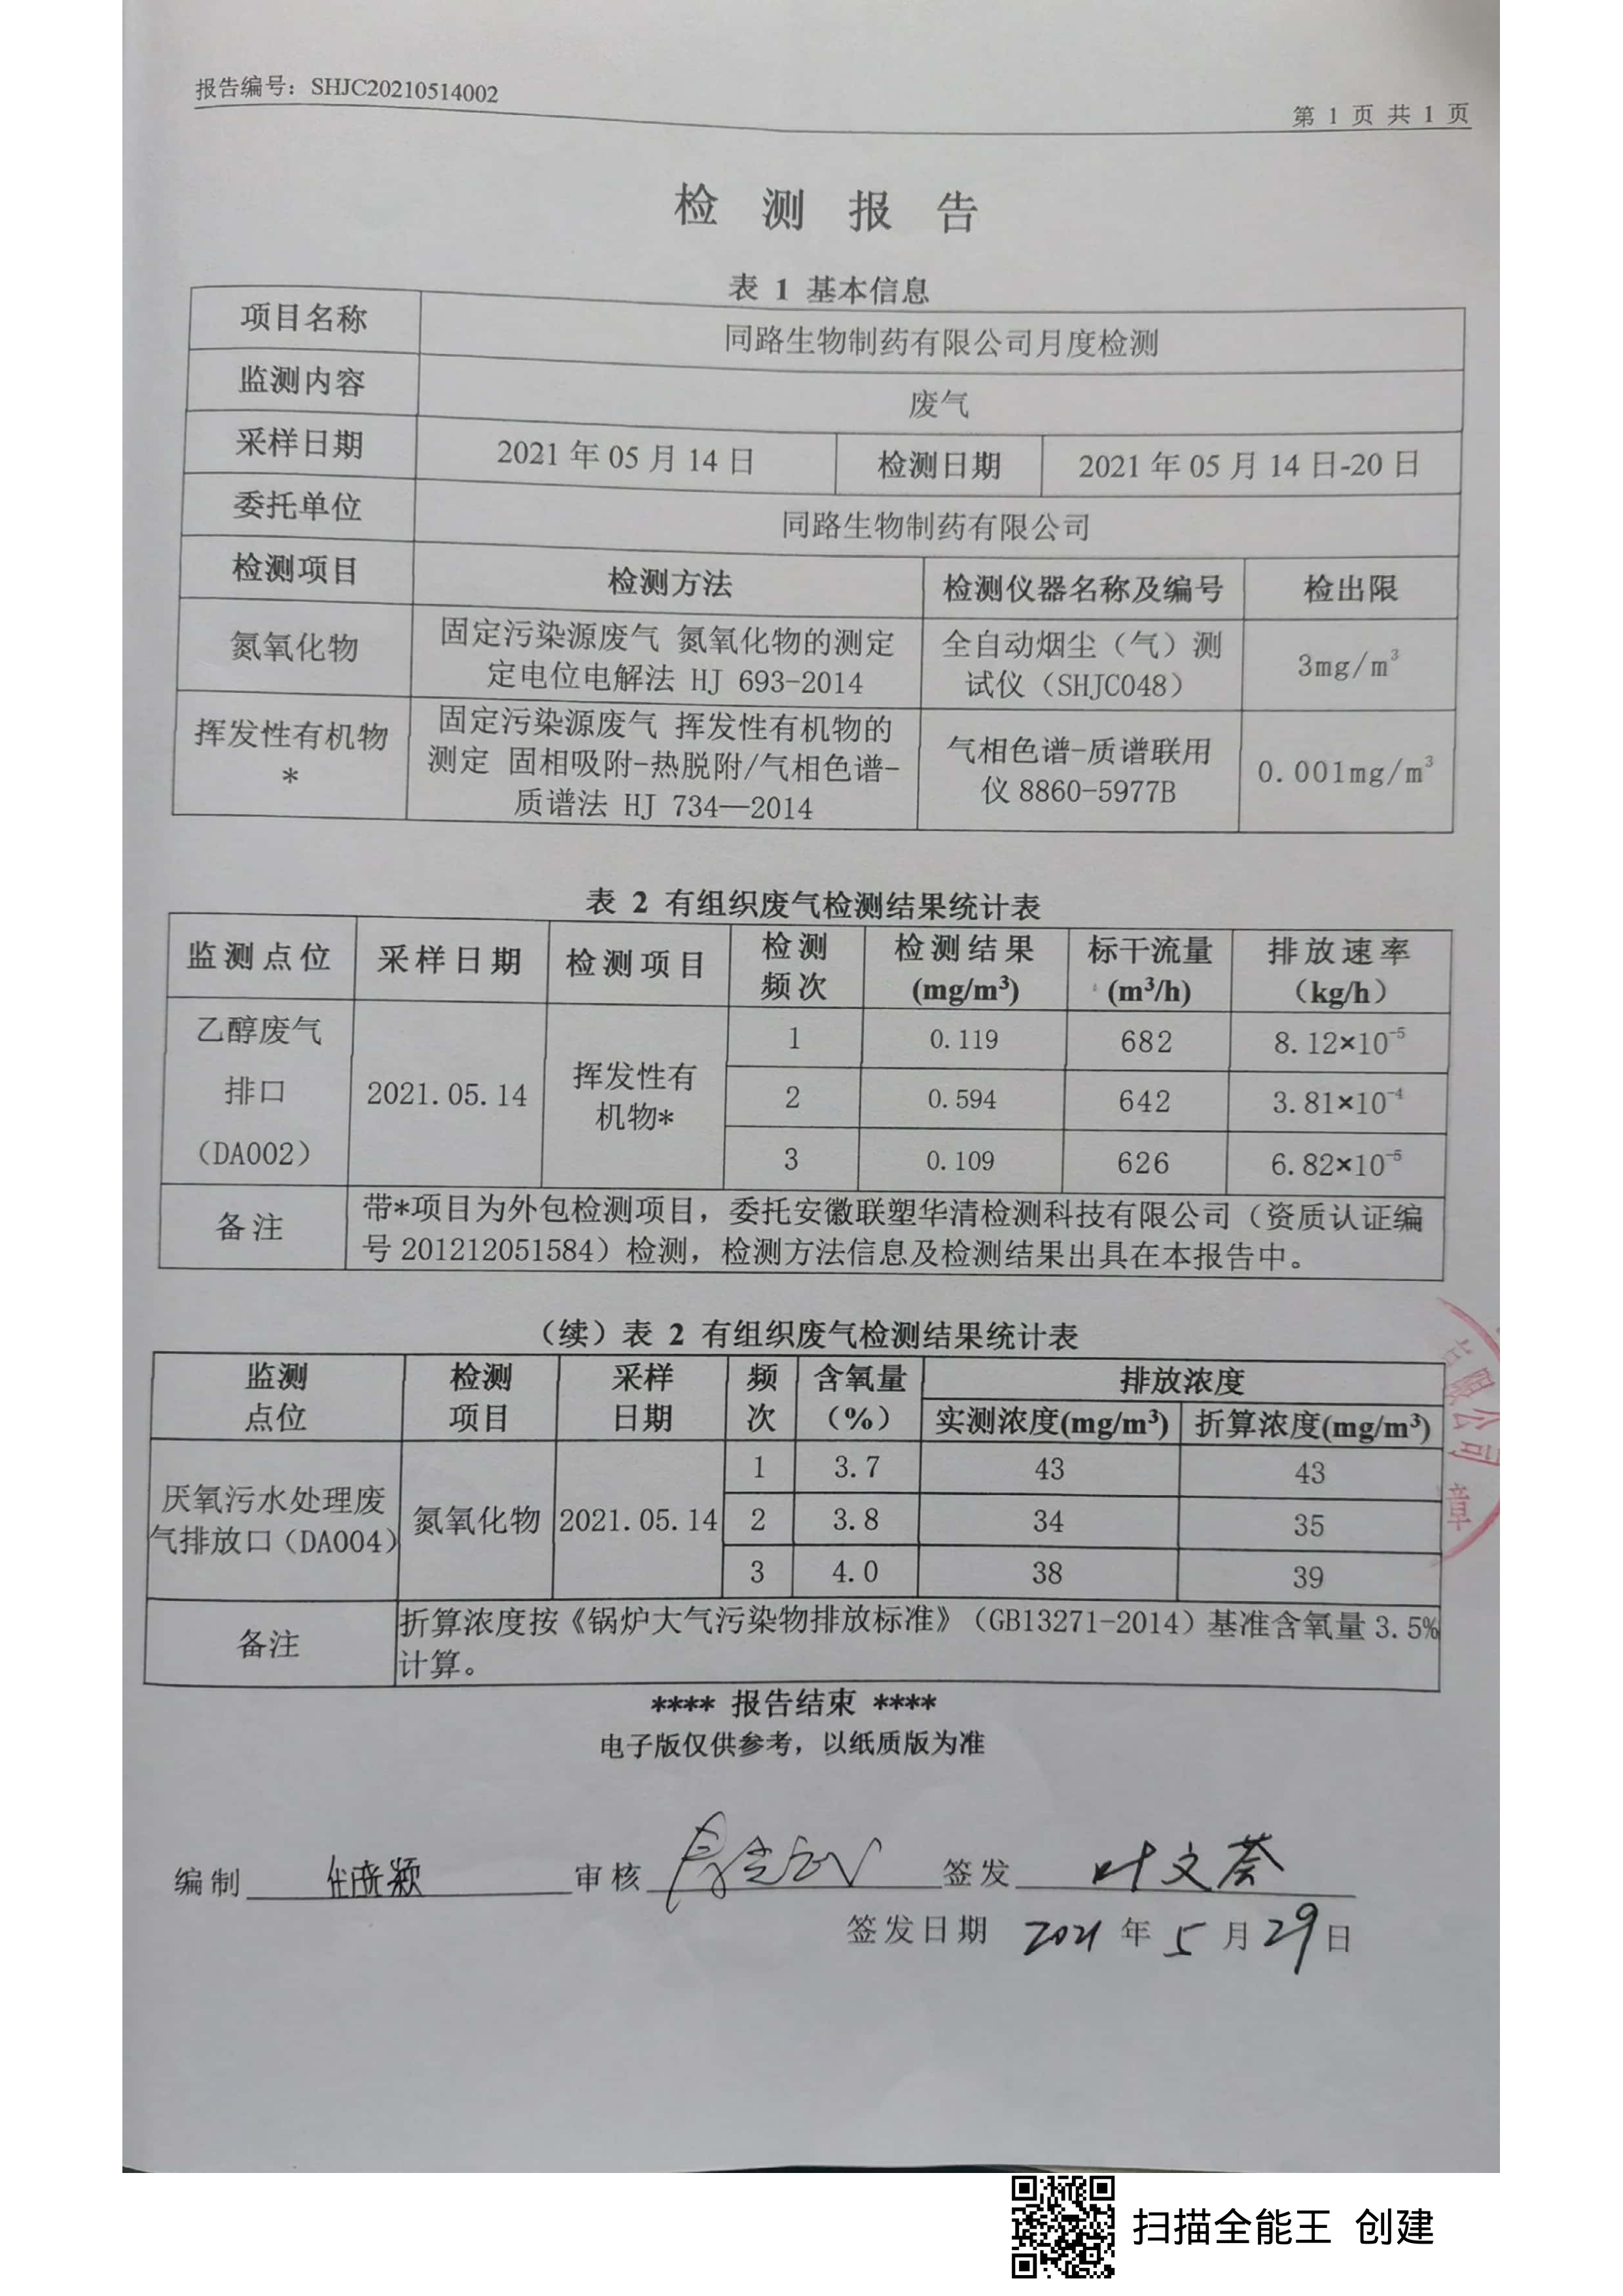 报告编号：SHJC20210514002
第 1 页 共 1 页
检 测 报 告
表 1 基本信息
项目名称 同路生物制药有限公司月度检测
监测内容 废气
采样日期 2021 年 05 月 14 日 检测日期 2021 年 05 月 14 日-20 日
委托单位 同路生物制药有限公司
检测项目 检测方法 检测仪器名称及编号 检出限
氮氧化物
固定污染源废气 氮氧化物的测定
定电位电解法 HJ 693-2014
全自动烟尘（气）测
试仪（SHJC048）
3mg/m³
挥发性有机物
*
固定污染源废气 挥发性有机物的
测定 固相吸附-热脱附/气相色谱-
质谱法 HJ 734—2014
气相色谱-质谱联用
仪 8860-5977B
0.001mg/m³
表 2 有组织废气检测结果统计表
监测点位 采样日期 检测项目
检测
频次
检测结果
(mg/m³)
标干流量
(m³/h)
排放速率
（kg/h）
乙醇废气
排口
（DA002）
2021.05.14
挥发性有
机物*
1 0.119 682 8.12×10⁻⁵
2 0.594 642 3.81×10⁻⁴
3 0.109 626 6.82×10⁻⁵
备注
带*项目为外包检测项目，委托安徽联塑华清检测科技有限公司（资质认证编
号 201212051584）检测，检测方法信息及检测结果出具在本报告中。
（续）表 2 有组织废气检测结果统计表
监测
点位
检测
项目
采样
日期
频
次
含氧量
（%）
排放浓度
实测浓度(mg/m³) 折算浓度(mg/m³)
厌氧污水处理废
气排放口（DA004）
氮氧化物
2021.05.14
1 3.7 43 43
2 3.8 34 35
3 4.0 38 39
备注
折算浓度按《锅炉大气污染物排放标准》（GB13271-2014）基准含氧量 3.5%
计算。
**** 报告结束 ****
电子版仅供参考，以纸质版为准
编制 审核 签发 叶文荟
签发日期 2021 年 5 月 29 日
限公司
章
扫描全能王 创建